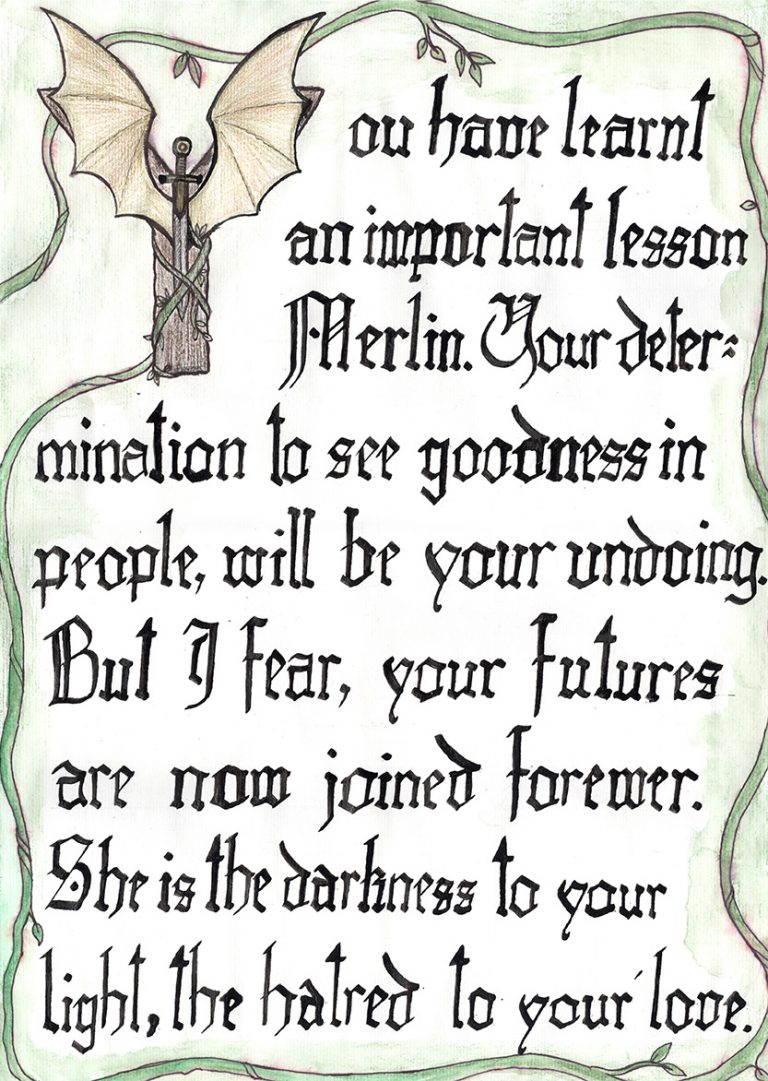 You have learnt
an important lesson
Merlin. Your deter-
mination to see goodness in
people, will be your undoing.
But I fear, your futures
are now joined forewer.
She is the darkness to your
light, the hatred to your love.